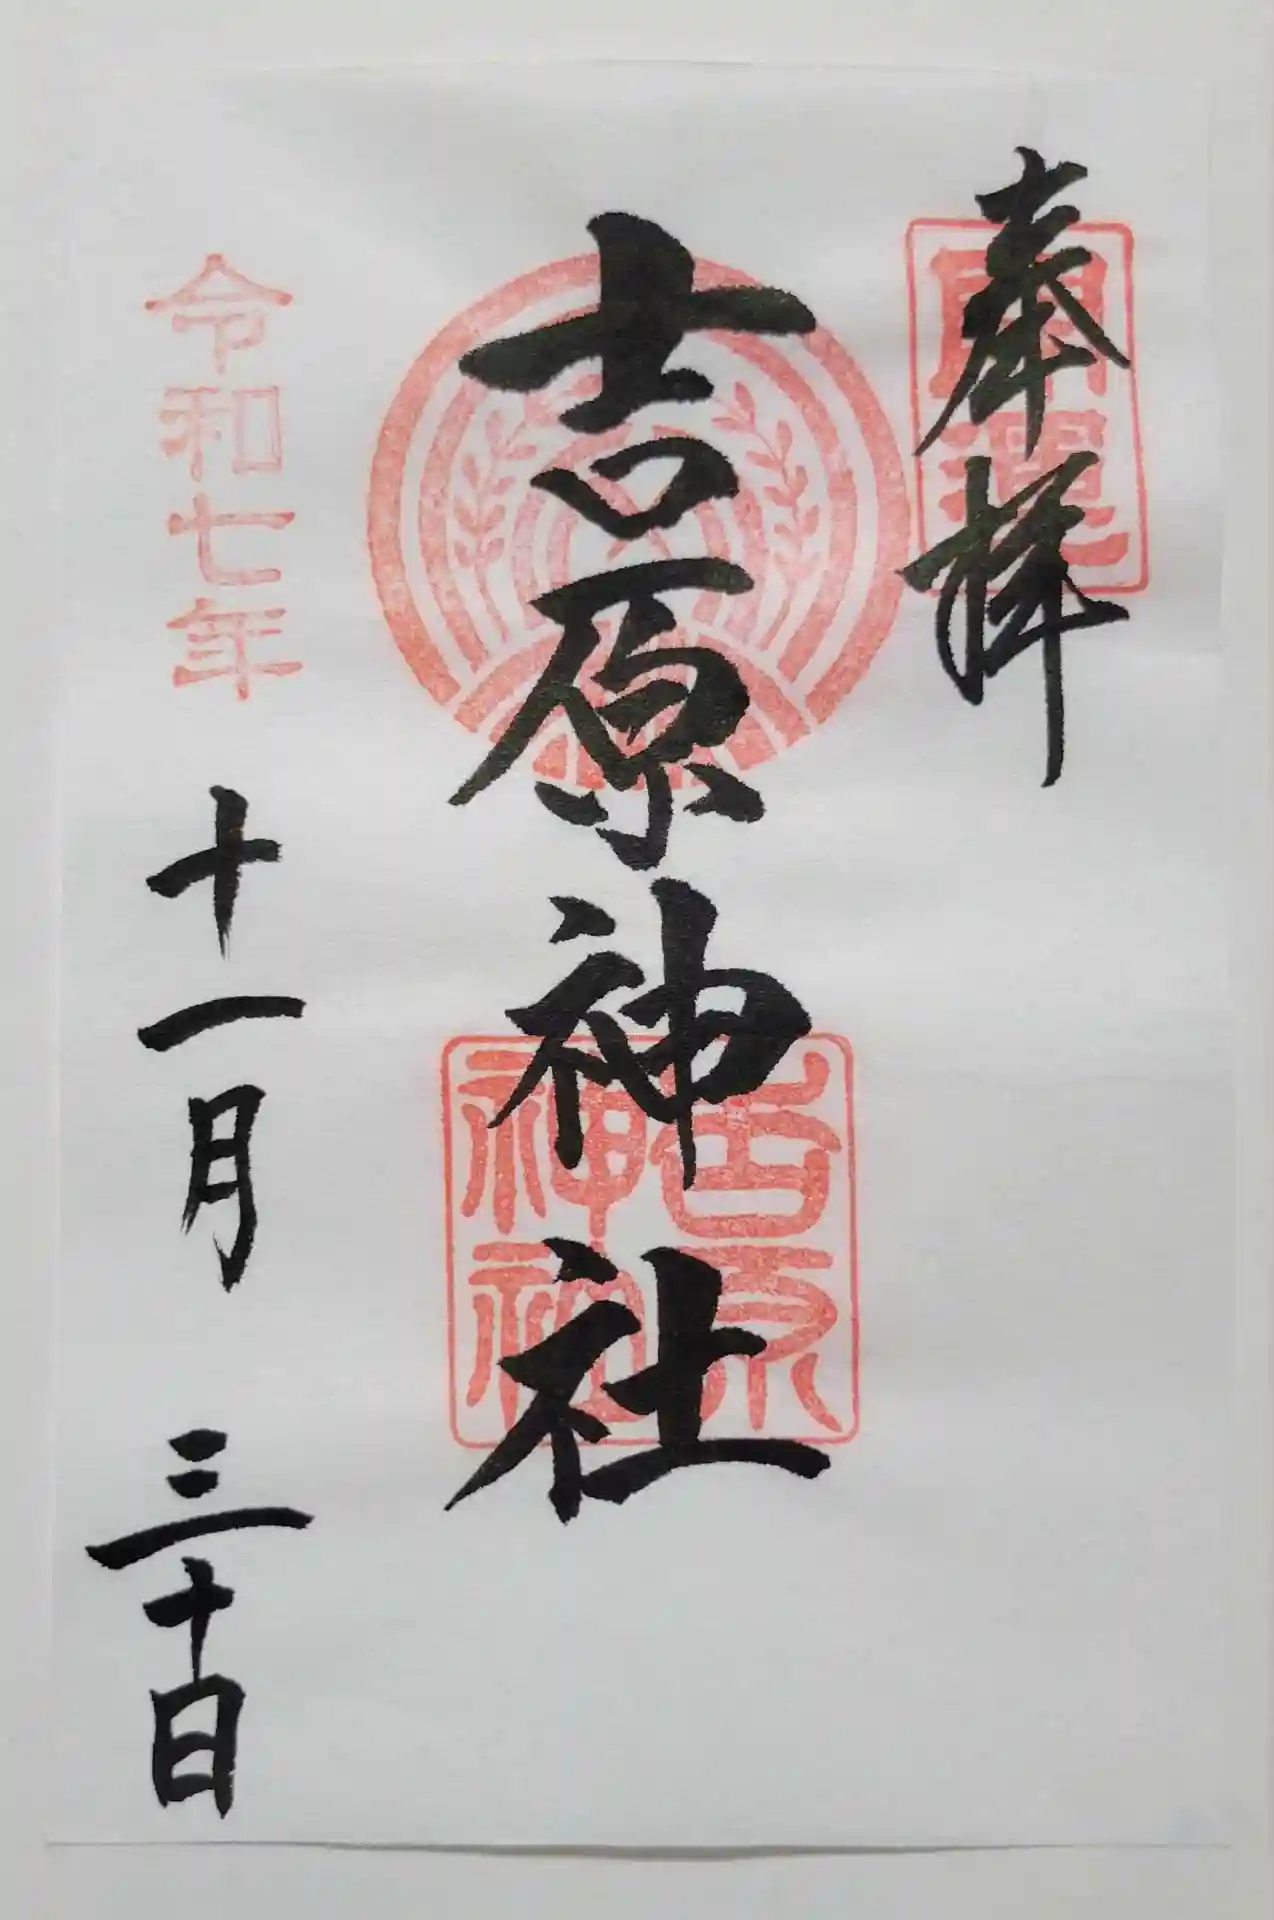 奉拝
開運
吉原神社
吉原
神社
令和七年
十一月三十日